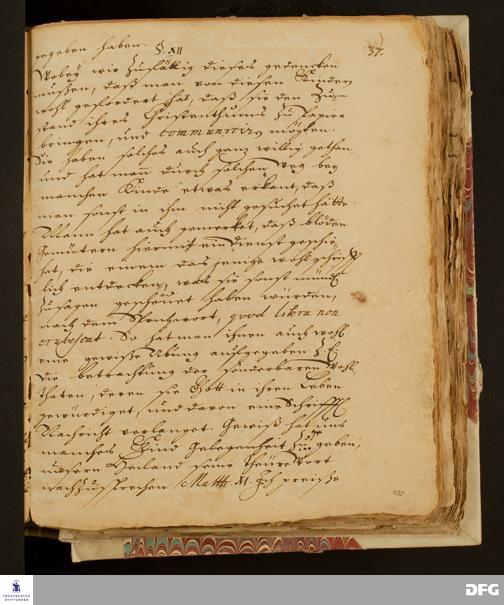 gegeben haben. §. XII
37.
Wobey wir zufällig dieses gedencken
müßen, daß man von diesen Kindern
wohl gefordert hat, daß sie den Zu-
stand ihres Christenthums zu Papier
bringen, und communiciren möchten.
Sie haben solches auch gantz willig gethan,
und hat man durch solchen Weg bey
manchen Kinde etwas erkant, daß
man sonst in ihm nicht gesuchet hätte.
Mann hat auch gemercket, daß blöden
Gemüthern hiermit ein dienst geschie-
het, die einem das jenige wohl schrifft-
lich entdecken, was sie sonst mündl.
zusagen gescheuet haben würden,
nach dem Sprichwort, quod litera non
erubescat. So hat man ihnen auch wohl
eine gewiße Übung aufgegeben z. E.
die betrachtung der sonderbaren Wohl-
thaten, deren sie Gott in ihren Leben
gewürdiget, und davon eine Schrifftl.
Nachricht verlanget. Gewiß hat uns
manches Kind Gelegenheit zu geben,
unsern Heiland seine theure Wort
nachzusprechen Matth. XI. Ich preiße
FRANCKESCHE
STIFTUNGEN
DFG